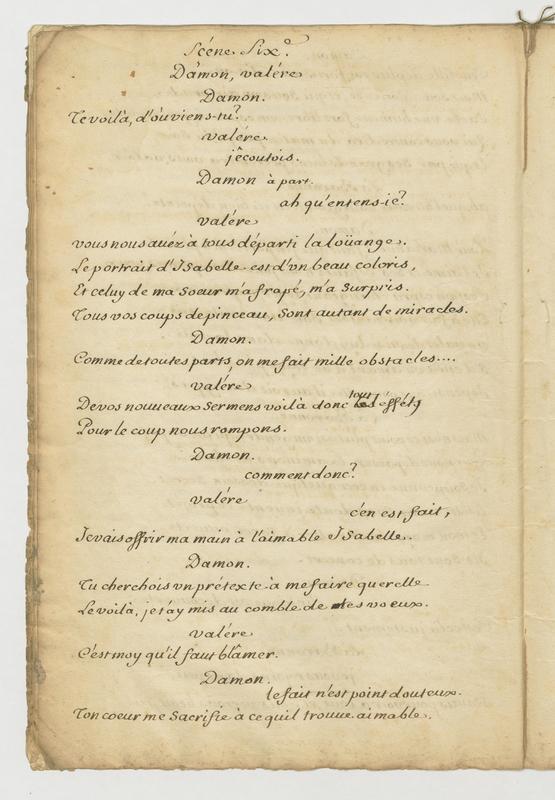 Scéne Six.e
Damon, valére
Damon.
Te voilà, d'où viens-tu?
valére.
j'écoutois.
Damon à part.
ah qu'entens-je?
valére
vous nous avéz à tous départi la loüange.
Le portrait d'Isabelle est d'vn beau coloris,
Et celuy de ma soeur m'a frapé, m'a surpris.
Tous vos coups de pinceau, sont autant de miracles.
Damon.
Comme de toutes parts, on me fait mille obstacles....
valére
De vos nouueaux sermens voilà donc tout l'éffét,
Pour le coup nous rompons.
Damon.
comment donc?
valére
c'en est fait,
Je vais offrir ma main à l'aimable Isabelle.
Damon.
Tu cherchois vn prétexte à me faire querelle
Le voilà, je t'ay mis au comble de tes voeux.
valére
C'est moy qu'il faut blâmer.
Damon.
le fait n'est point douteux.
Ton coeur me sacrifie à ce quil trouue aimable.